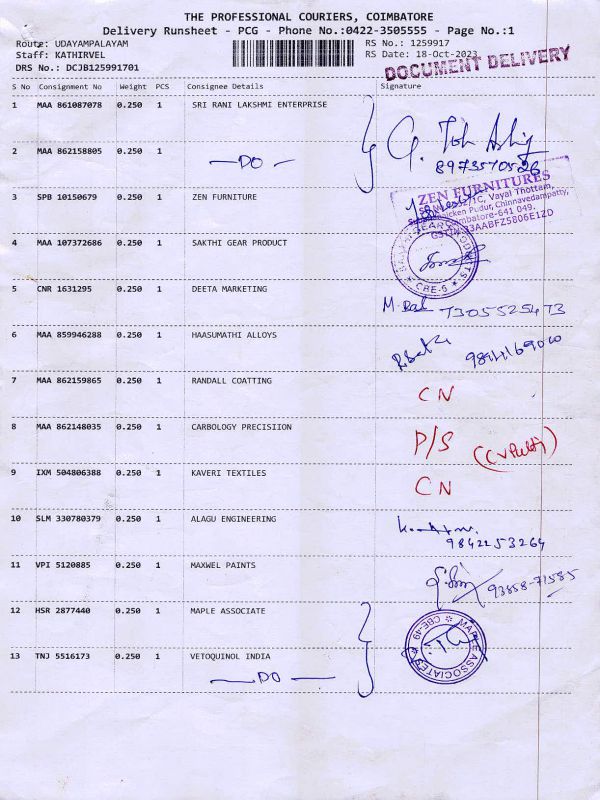 THE PROFESSIONAL COURIERS, COIMBATORE
Delivery Runsheet - PCG - Phone No.:0422-3505555 - Page No.:1
Route: UDAYAMPALAYAM RS No.: 1259917
Staff: KATHIRVEL RS Date: 18-Oct-2023
DRS No.: DCJB125991701
DOCUMENT DELIVERY
S No Consignment No Weight PCS Consignee Details Signature
1 MAA 861087078 0.250 1 SRI RANI LAKSHMI ENTERPRISE
2 MAA 862158805 0.250 1
DO
8973570526
3 SPB 10150679 0.250 1 ZEN FURNITURE
ZEN FURNITURES
Vayal Thottam,
Pudur, Chinnavedampatty,
Coimbatore-641 049.
33AABFZ5806E1ZD
4 MAA 107372686 0.250 1 SAKTHI GEAR PRODUCT
CBE-6
5 CNR 1631295 0.250 1 DEETA MARKETING
7305525473
6 MAA 859946288 0.250 1 HAASUMATHI ALLOYS
7 MAA 862159865 0.250 1 RANDALL COATTING
CN
8 MAA 862148035 0.250 1 CARBOLOGY PRECISIION
P/S
9 IXM 504806388 0.250 1 KAVERI TEXTILES
CN
10 SLM 330780379 0.250 1 ALAGU ENGINEERING
9842253264
11 VPI 5120885 0.250 1 MAXWEL PAINTS
93858-71585
12 HSR 2877440 0.250 1 MAPLE ASSOCIATE
MAPLE ASSOCIATES
CBE-49
13 TNJ 5516173 0.250 1 VETOQUINOL INDIA
DO